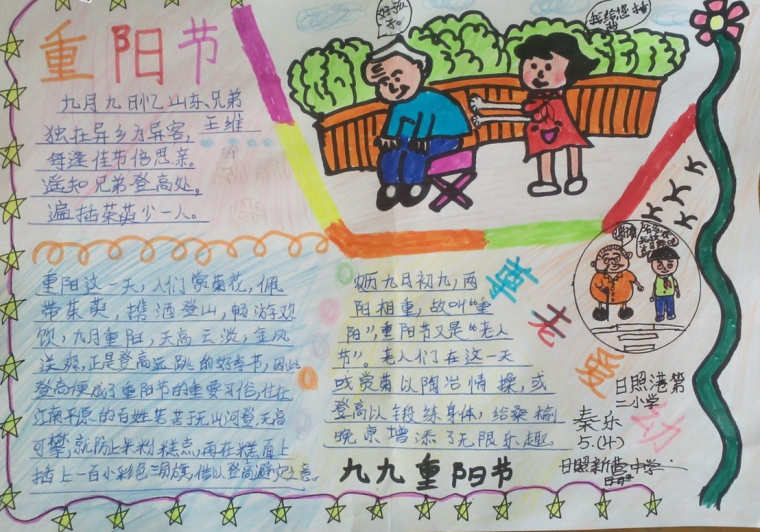 重阳节
九月九日忆山东兄弟
王维
独在异乡为异客，
每逢佳节倍思亲。
遥知兄弟登高处，
遍插茱萸少一人。
重阳这一天，人们赏菊花，佩
带茱萸，携酒登山，畅游欢
饮，九月重阳，天高云淡，金风
送爽，正是登高远眺的好季节，因此
登高便成了重阳节的重要习俗，住在
江南平原的百姓苦于无山河登，无高
可攀，就防上米粉糕点，再在糕面上
插上一百小彩色三角旗，借以登高避灾之意。
九月初九，两
阳相重，故叫"重
阳"，重阳节又是"老人
节"。老人们在这一天
或赏菊以陶冶情操，或
登高以锻练身体，给桑榆
晚京增添了无限乐趣
九九重阳节
尊老爱幼
日照港第
二小学
秦乐
5.(4)